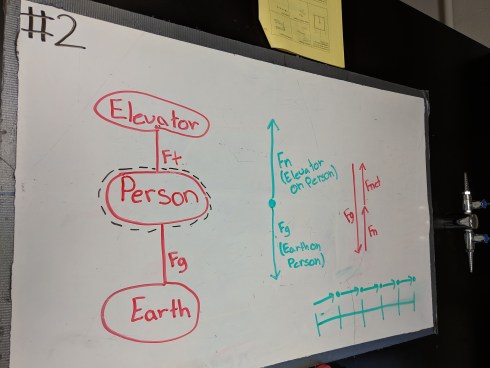 #2
Elevator
Ft
Person
Fg
Earth
Fn
(Elevator
on Person)
Fg
(Earth on
Person)
Fnet
Fg
Fn